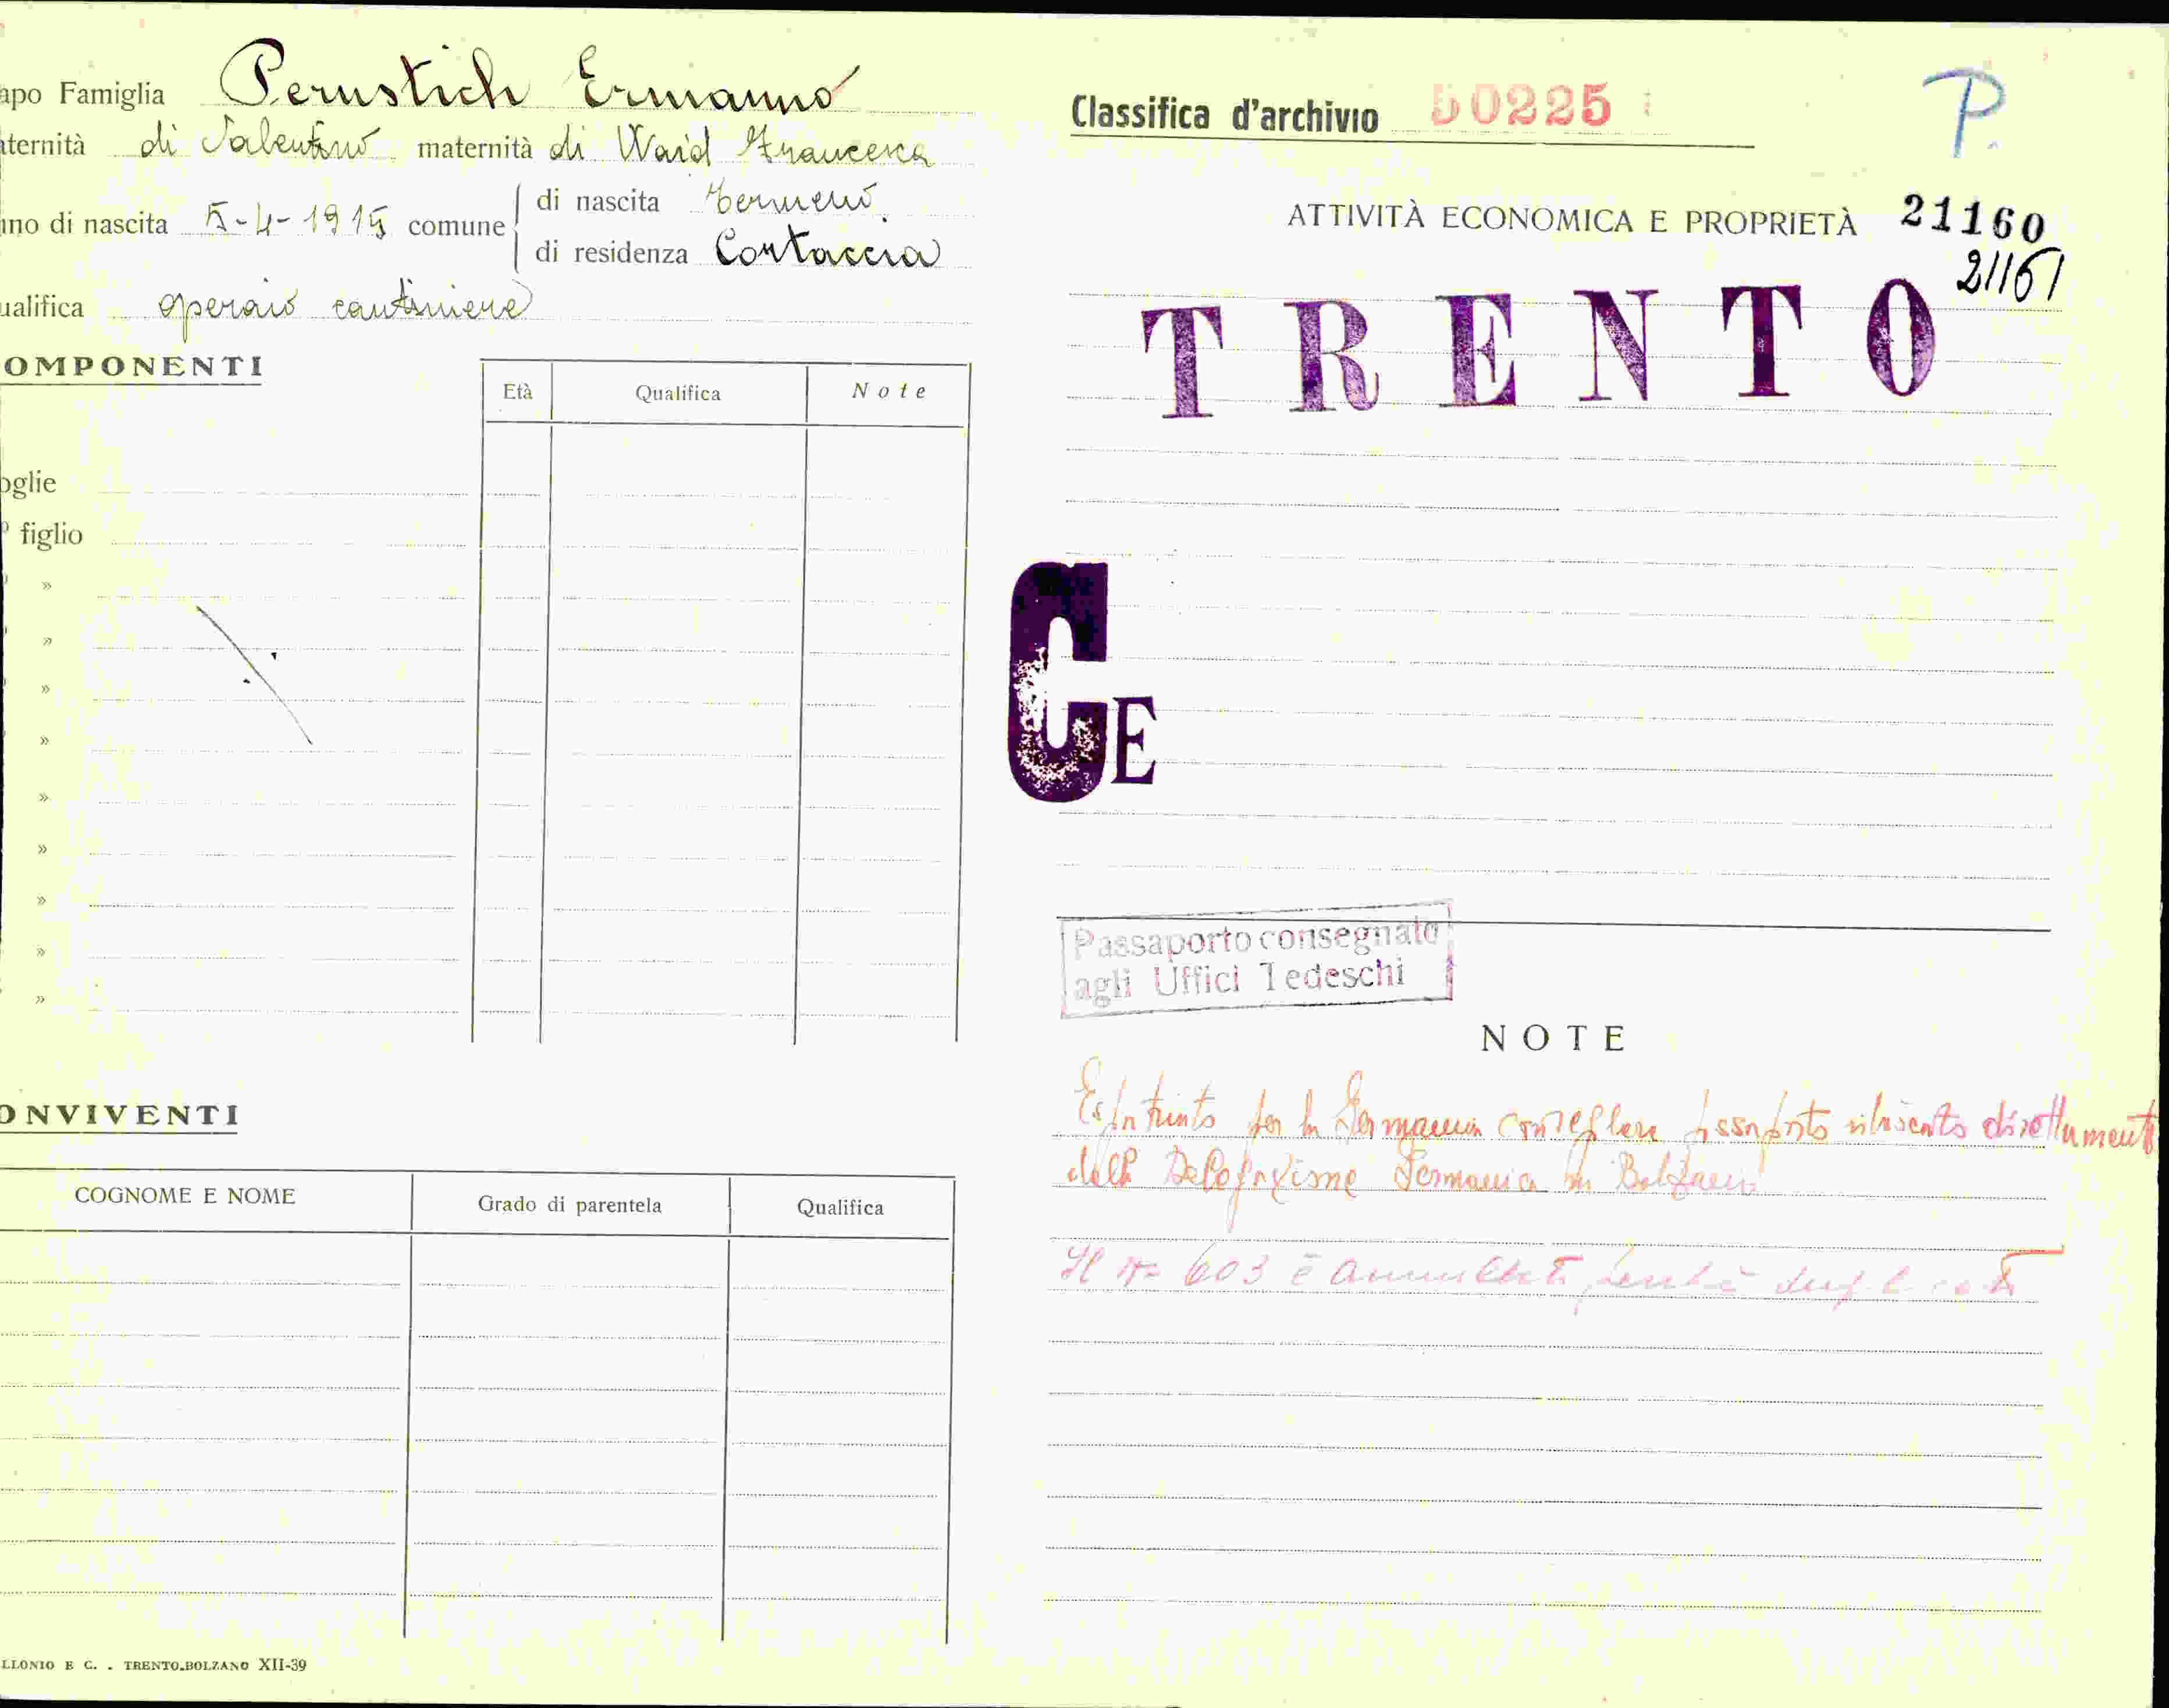 apo Famiglia Perustich Ermanno
aternità di Valentino maternità di Waid Francesca
nno di nascita 5-4-1915 comune di nascita Termeno
di residenza Cortaccia
ualifica operaio cantiniere
OMPONENTI
Età Qualifica Note
oglie
° figlio
»
»
»
»
»
»
»
»
»
ONVIVENTI
COGNOME E NOME Grado di parentela Qualifica
LLONIO E C. . TRENTO-BOLZANO XII-39
Classifica d'archivio 50225
P.
ATTIVITÀ ECONOMICA E PROPRIETÀ 21160
21161
TRENTO
CE
Passaporto consegnato
agli Uffici Tedeschi
NOTE
Espatriato per la Germania con regolare passaporto rilasciato direttamente
dalla Delegazione Germanica di Bolzano
Il N° 603 è annullato perchè duplicato